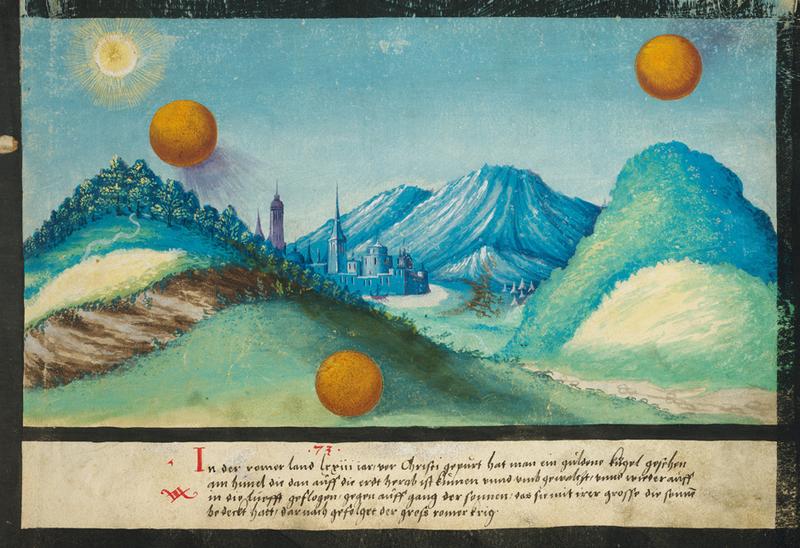 .73.
In der romer land lxxiii iar vor Christi gepurt hat man ein guldene kugel gesehen
am himel die dan auff die erdt herab ist kumen vnnd vmb gewaltzt vnnd wieder auff
in die lufft geflogen gegen auff gang der sonnen das sie mit irer grosse die sonn
bedeckt hatt darnach gefolget der gross romer krig